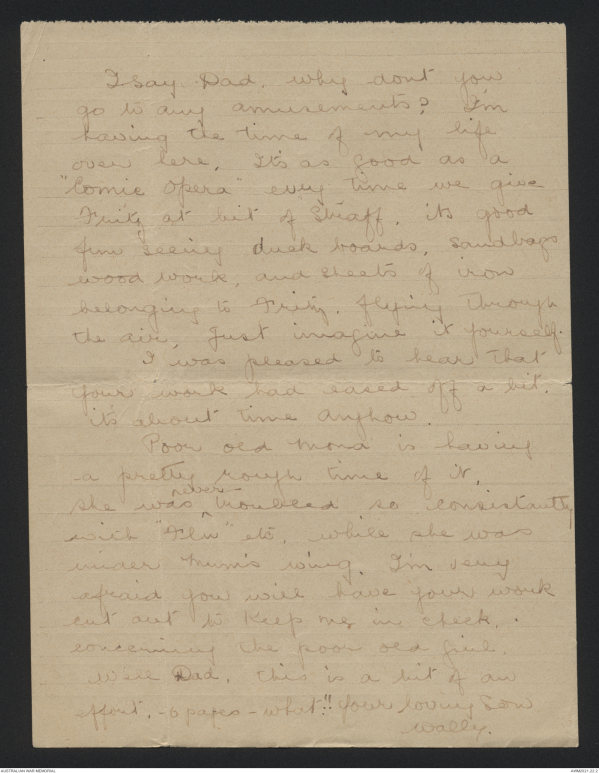 I say Dad, why don't you
go to any amusements? I'm
having the time of my life
over here. It's as good as a
"Comic Opera" every time we give
Fritz at bit of Straff, its good
fun seeing duck boards, sandbags
wood work, and sheets of iron
belonging to Fritz, flying through
the air, Just imagine it yourself.
I was pleased to hear that
your work had eased off a bit.
it's about time anyhow.
Poor old Mona is having
a pretty rough time of it,
she was never troubled so consistantly
with "Flu" etc, while she was
under Mum's wing. I'm very
afraid you will have your work
cut out to keep me in check,
concerning the poor old girl.
Well Dad, this is a bit of an
effort, - 6 pages - what!! Your loving Son
Wally.
AUSTRALIAN WAR MEMORIAL